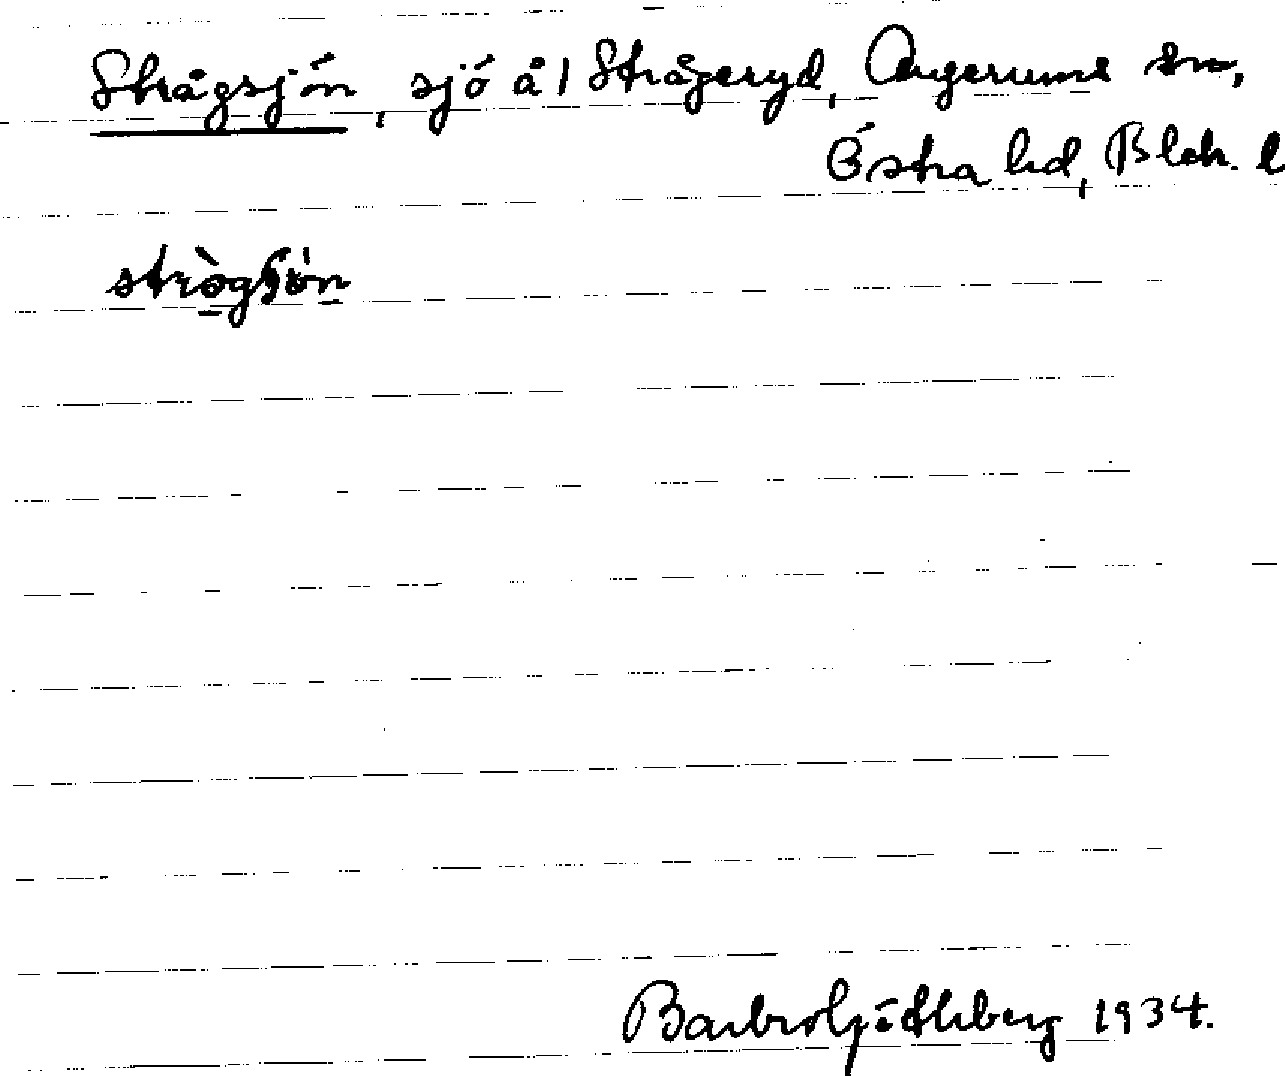 Strågsjön, sjö å 1 Strågeryd, Augerums sn,
Östra hd, Blek. l
Barbro Göthberg 1934.